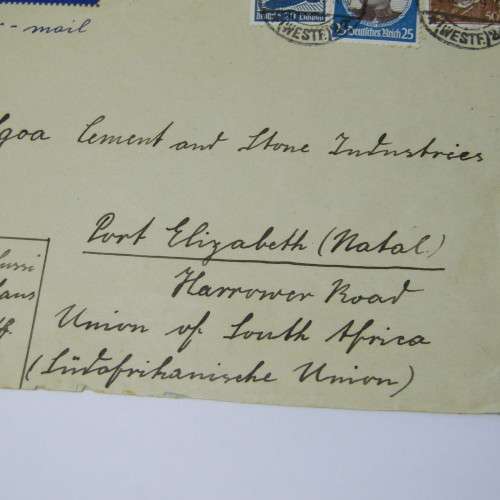 - mail
25 Deutsches Reich 25
(WESTF.)
(WESTF.) 2
goa Cement and Stone Industries
Port Elizabeth (Natal)
Harrower Road
Union of South Africa
(Südafrikanische Union)